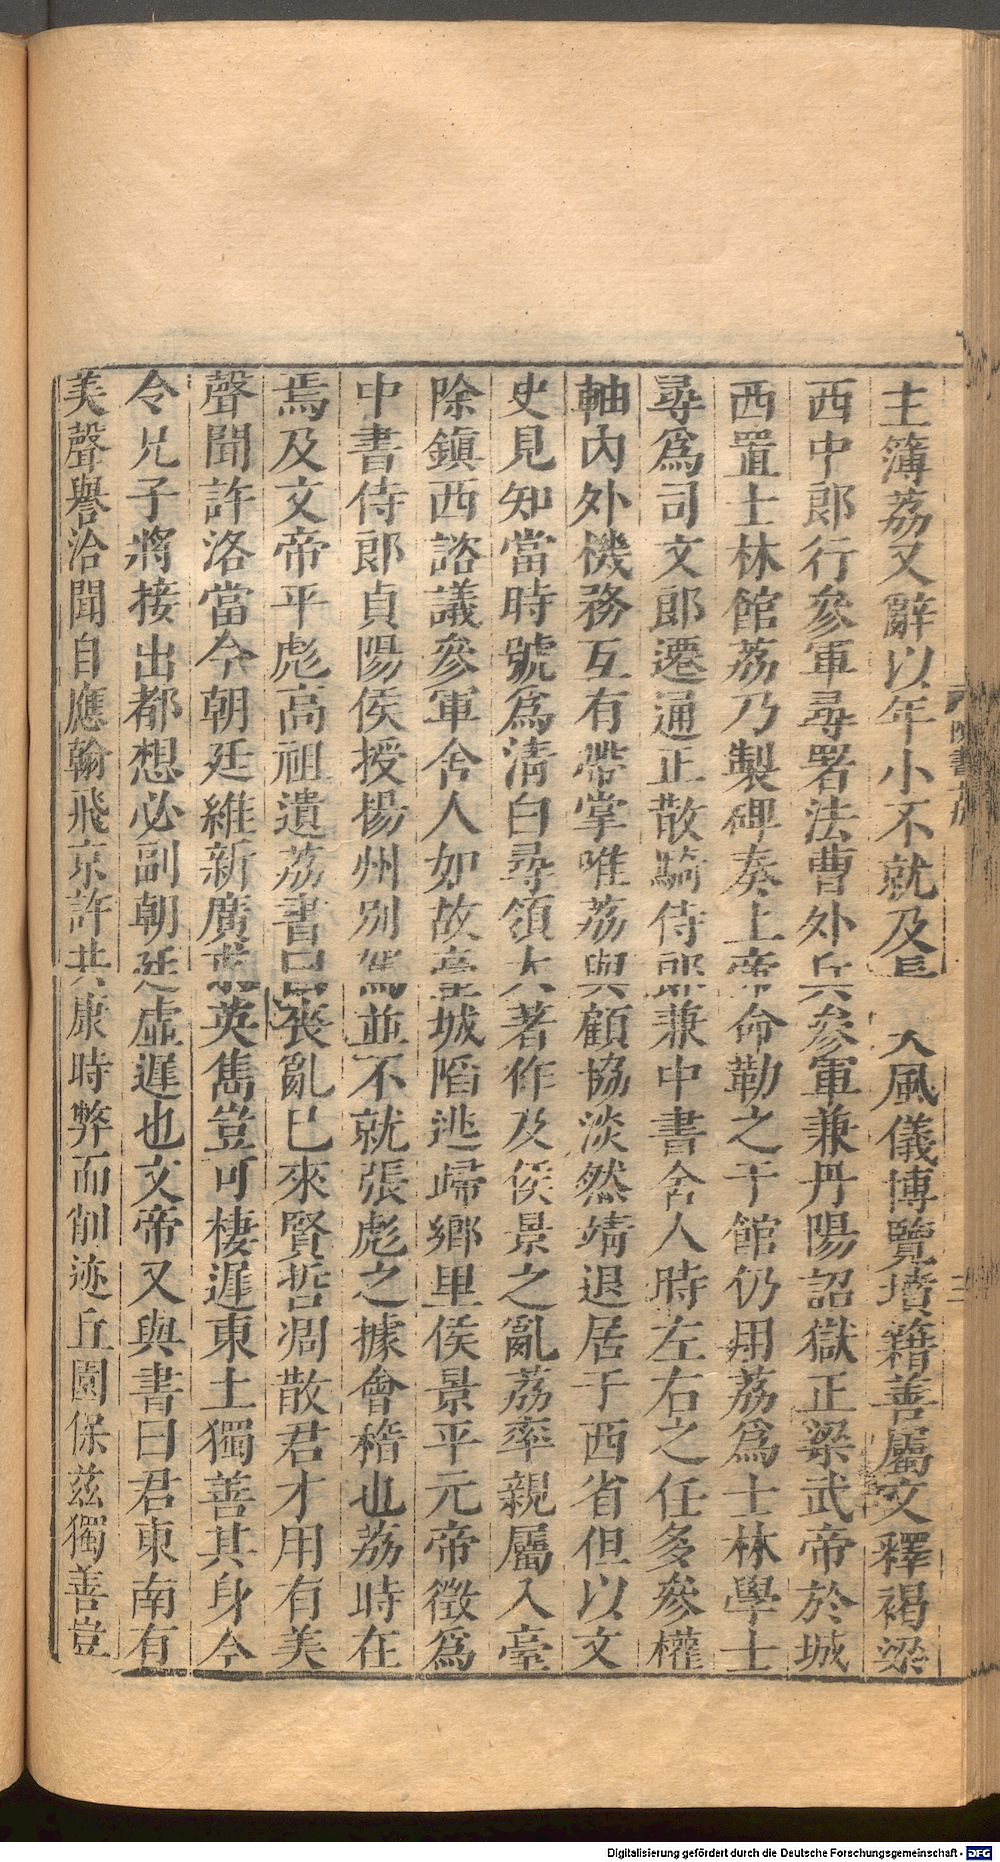 主簿荔又辭以年小不就及長 大風儀博覽墳籍善屬文釋褐梁
西中郎行參軍尋署法曹外兵參軍兼丹陽詔獄正梁武帝於城
西置士林館荔乃製碑奏上帝命勒之于館仍用荔爲士林學士
尋爲司文郎遷通正散騎侍郎兼中書舍人時左右之任多參權
軸內外機務互有帶掌唯荔與顧協淡然靖退居于西省但以文
史見知當時號爲清白尋領大著作及侯景之亂荔率親屬入臺
除鎮西諮議參軍舍人如故臺城陷逃歸鄉里侯景平元帝徵爲
中書侍郎貞陽侯授揚州別駕並不就張彪之據會稽也荔時在
焉及文帝平彪高祖遺荔書曰喪亂已來賢哲凋散君才用有美
聲聞許洛當今朝廷維新廣求英雋豈可棲遲東土獨善其身今
令兄子將接出都想必副朝廷虛遲也文帝又與書曰君東南有
美聲譽洽聞自應翰飛京許共康時弊而削迹丘園保茲獨善豈
陳書
三
Digitalisierung gefördert durch die Deutsche Forschungsgemeinschaft - DFG